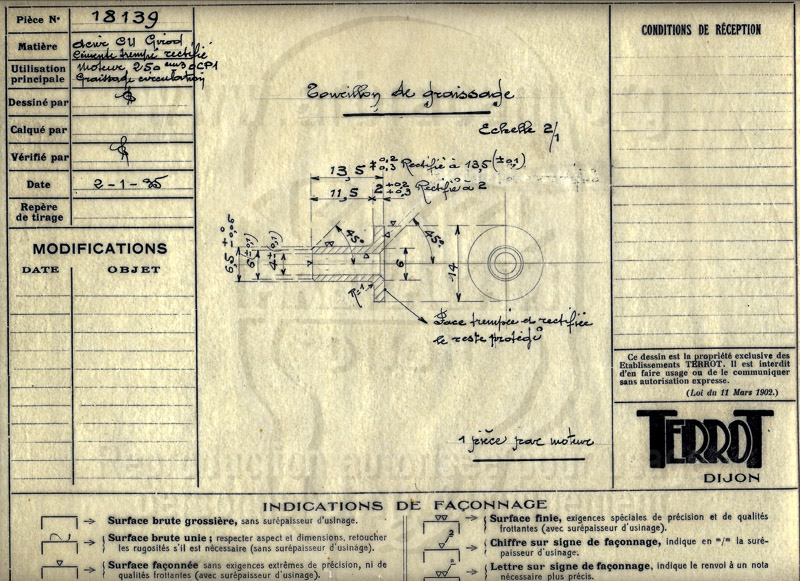 Pièce N° 18139
Matière acier CU Girod
Cémenté trempé rectifié
Utilisation principale Moteur 250 cm3 OCP1
Graissage circulation
Dessiné par
Calqué par
Vérifié par
Date 2-1-35
Repère de tirage
MODIFICATIONS
DATE OBJET
Tourillon de graissage
Echelle 2/1
13,5 +0,2 +0,3 Rectifié à 13,5 (±0,1)
11,5 2 +0,2 +0,3 Rectifié à 2
45°
45°
6(±0,1)
4±(0,1)
6
14
R=1
Face trempée et rectifiée
le reste protégé
1 pièce par moteur
CONDITIONS DE RÉCEPTION
Ce dessin est la propriété exclusive des
Etablissements TERROT. Il est interdit
d'en faire usage ou de le communiquer
sans autorisation expresse.
(Loi du 11 Mars 1902.)
TERROT
DIJON
INDICATIONS DE FAÇONNAGE
Surface brute grossière, sans surépaisseur d'usinage.
Surface brute unie ; respecter aspect et dimensions, retoucher
les rugosités s'il est nécessaire (sans surépaisseur d'usinage).
Surface façonnée sans exigences extrêmes de précision, ni de
qualités frottantes (avec surépaisseur d'usinage).
Surface finie, exigences spéciales de précision et de qualités
frottantes (avec surépaisseur d'usinage).
Chiffre sur signe de façonnage, indique en m/m la suré-
paisseur d'usinage.
Lettre sur signe de façonnage, indique le renvoi à un nota
nécessaire plus précis.